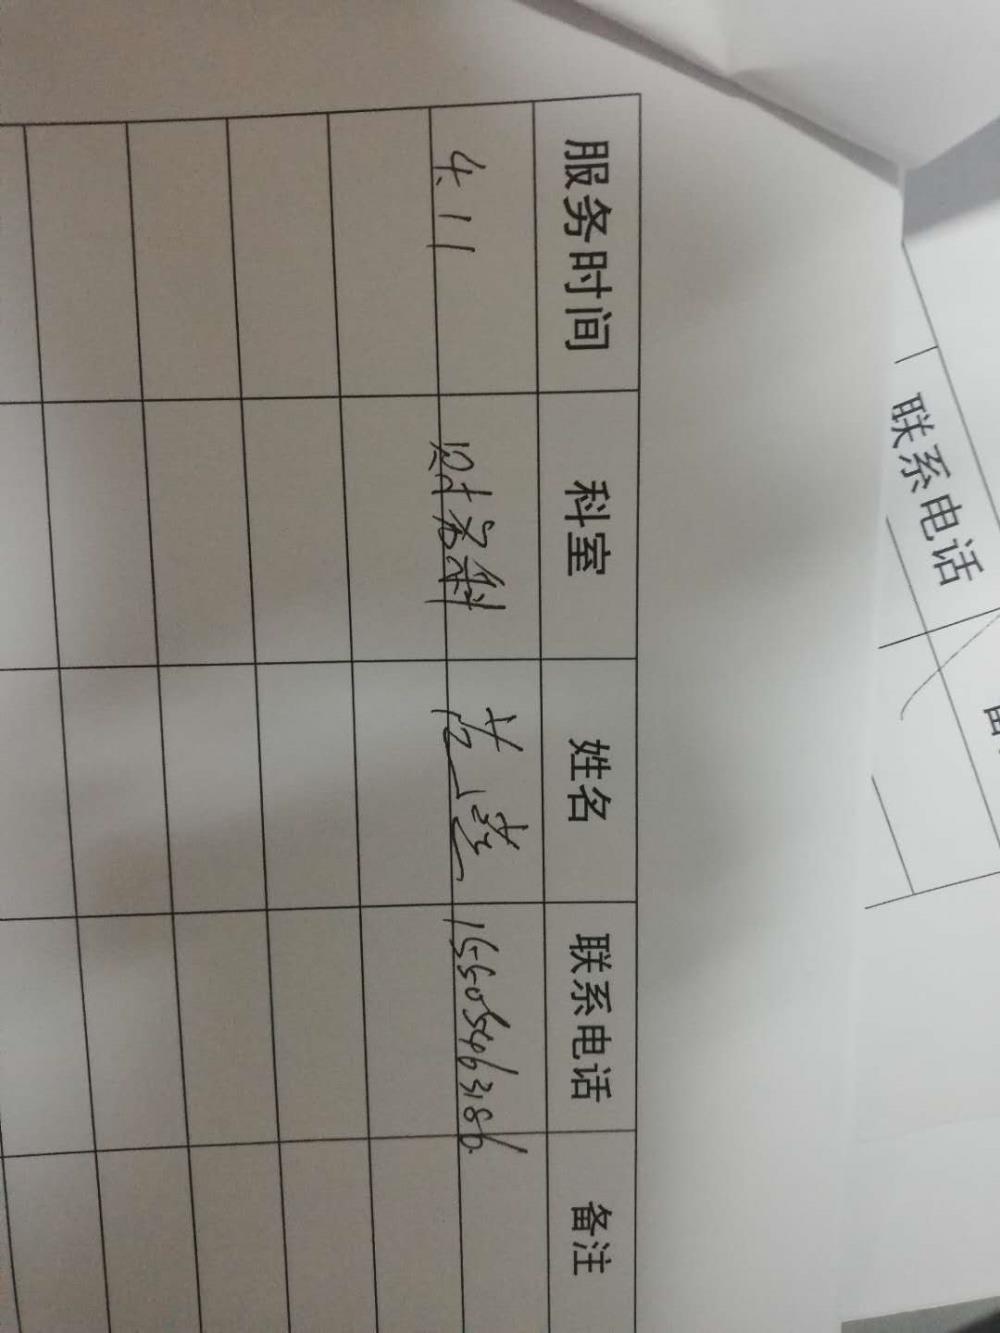 服务时间 科室 姓名 联系电话 备注
4.11 财务科 15505463186
联系电话